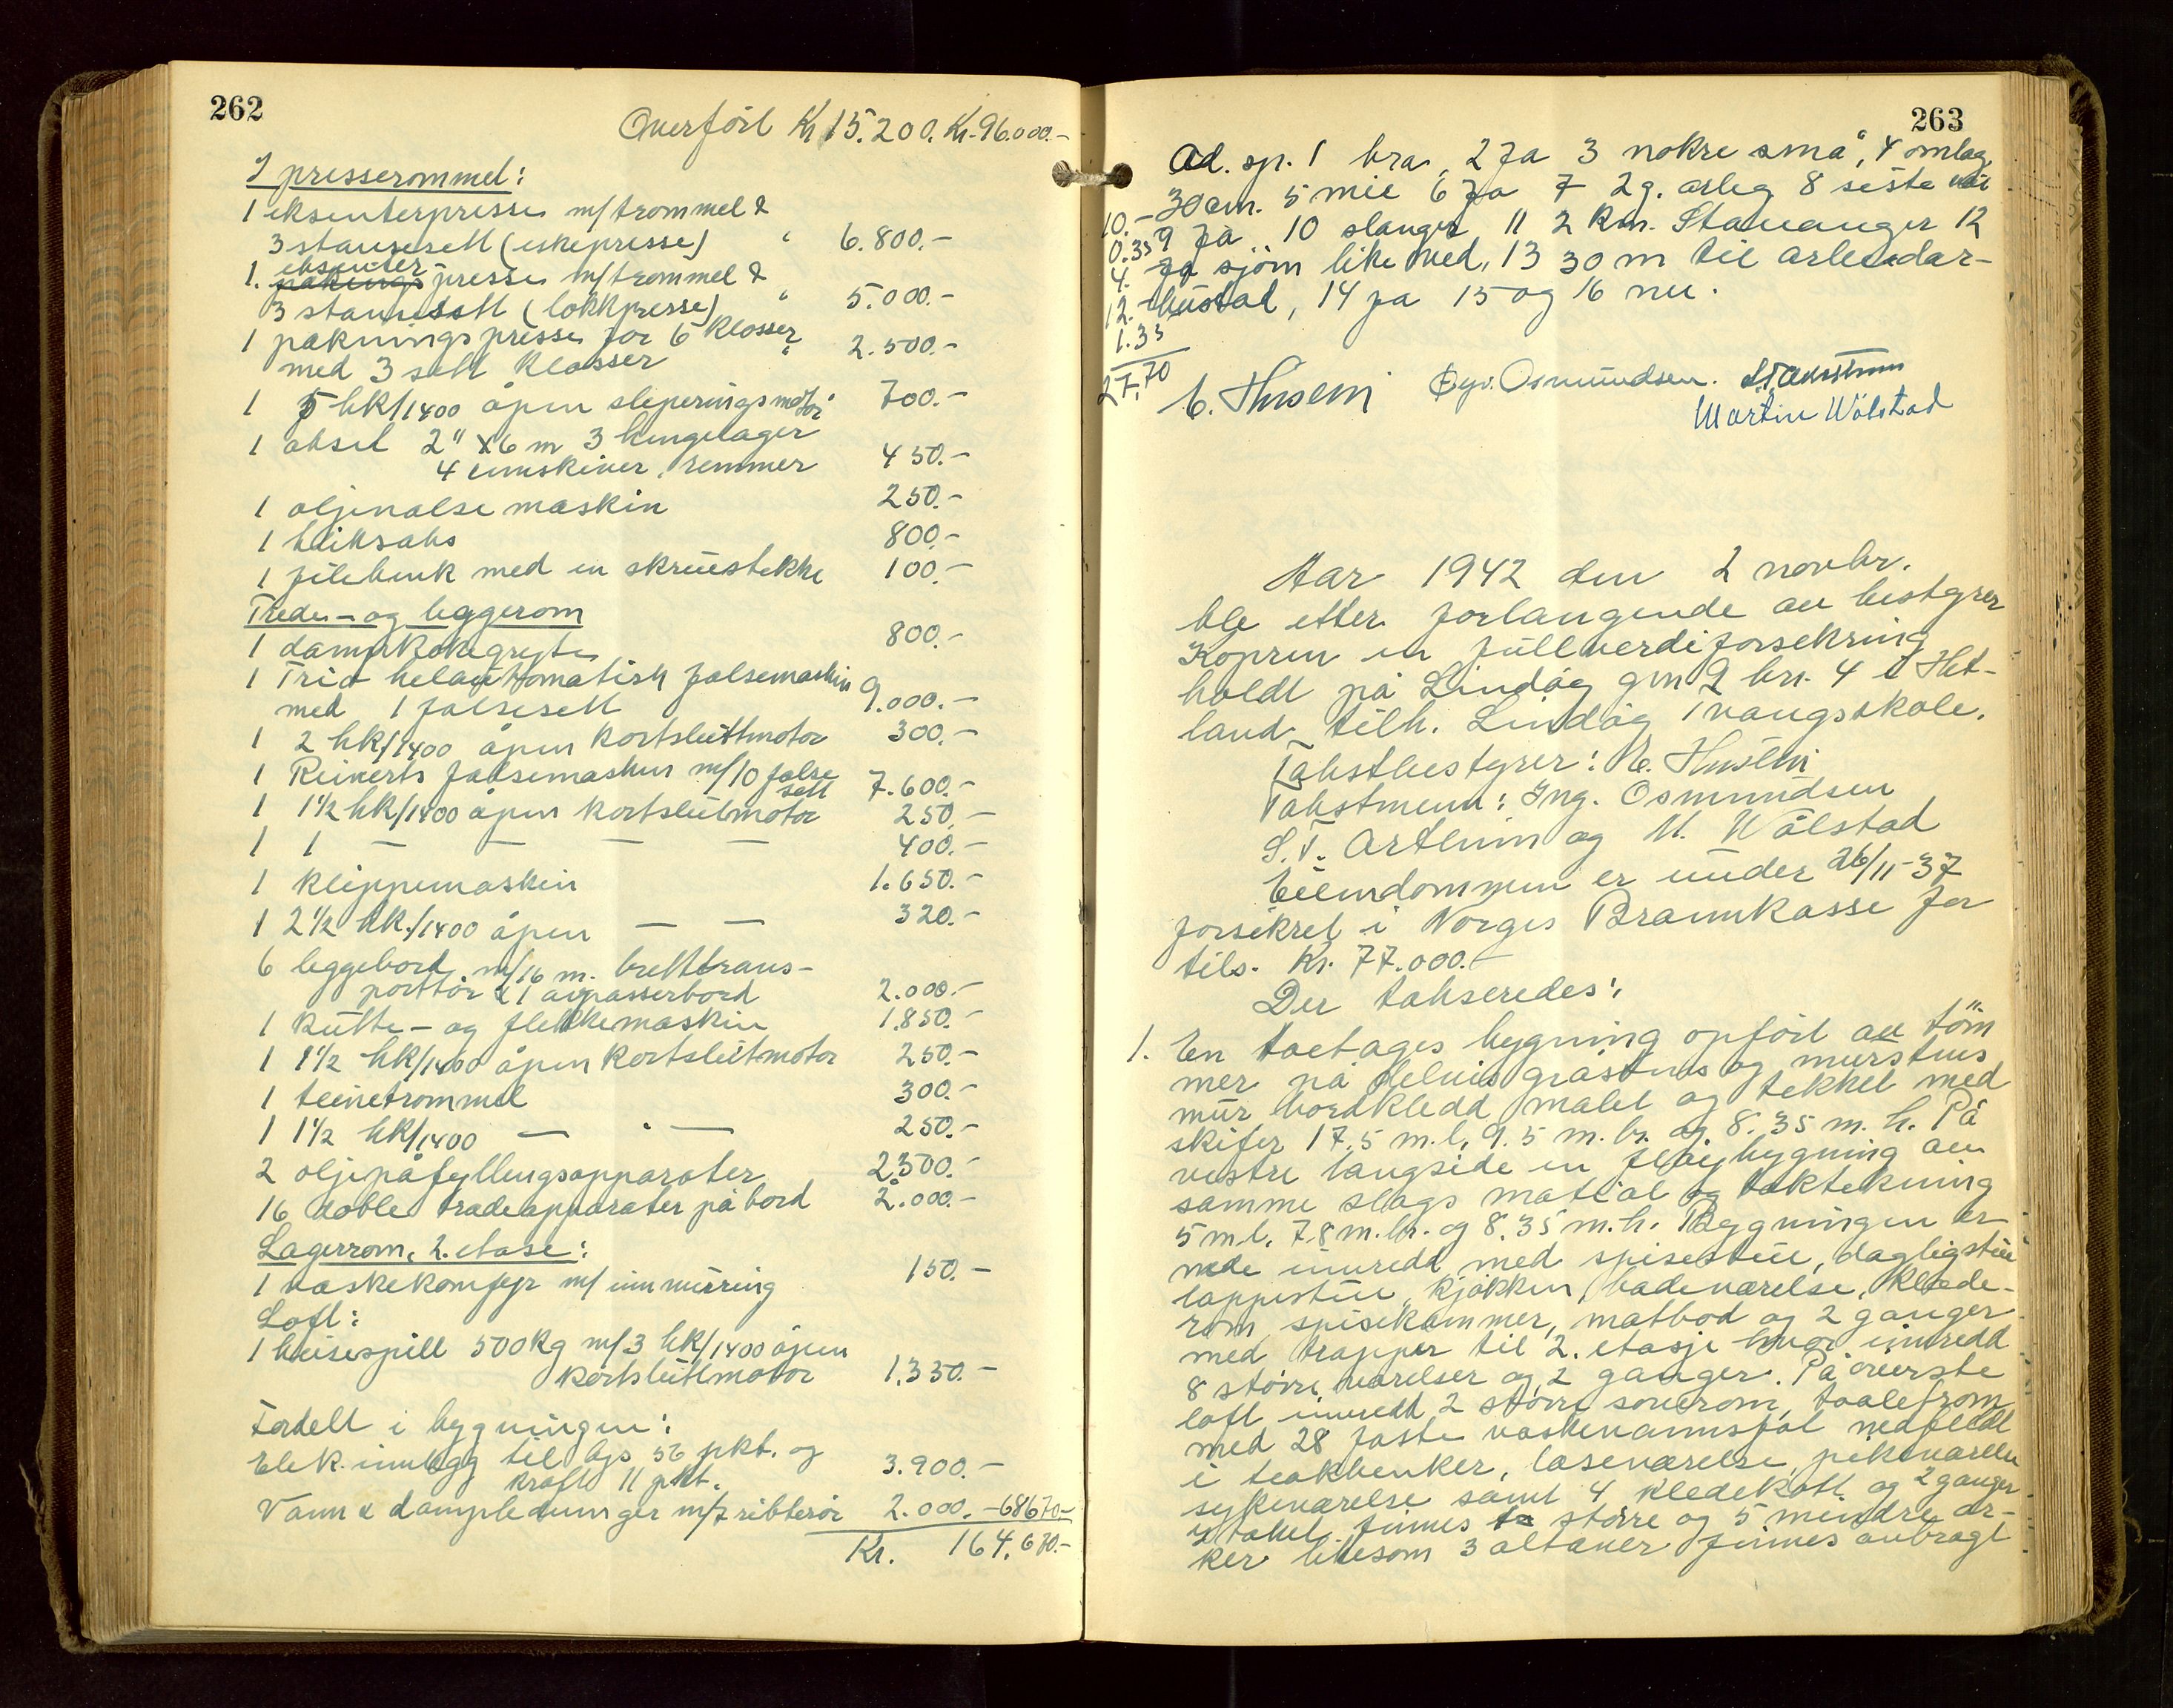 262
Overført Kr 15.200. Kr. 96.000.-
I presserommel:
1 eksenterpresse m/trommel &
3 stansesett (eskepresse) " 6.800.-
eksenter
1. paknings presse m/trommel &
3 stansesett (lokkpresse) " 5.000.-
1 pakningspresse for 6 klosser
med 3 sett klosser " 2.500.-
1 5 hk/1400 åpen sleperingsmotor 700.-
1 aksel 2" x 6 m 3 hengelager
4 remskiver, remmer 450.-
1 oljevalsemaskin 250.-
1 bliksaks 800.-
1 filebenk med en skruestikke 100.-
Trede- og leggerom
1 dampkokegryte 800.-
1 Trio helautomatisk falsemaskin
med 1 falsesett 9.000.-
1 2 hk/1400 åpen kortsluttmotor 300.-
1 Reinerts falsemaskin m/10 false
sett 7.600.-
1 1½ hk/1400 åpen kortslutmotor 250.-
1 1 — — — — 400.-
1 klippemaskin 1.650.-
1 2½ hk./1400 åpen — — 320.-
6 leggebord m/16 m. bretttrans-
portør & 1 avpasserbord 2.000.-
1 kutte- og flekkemaskin 1.850.-
1 1½ hk/1400 åpen kortslutmotor 250.-
1 teinetrommel 300.-
1 1½ hk/1400 — " — 250.-
2 oljepåfyllingsapparater 2.500.-
16 doble tradeapparater på bord 2.000.-
Lagerrom, 2. etase:
1 vaskekomfyr m/ innmuring 150.-
Loft:
1 heisespill 500 kg m/3 hk/1400 åpen
kortsluttmotor 1.350.-
Fordelt i bygningen:
Elek. innlegg til lys 56 pkt. og
kraft 11 pkt. 3.900.-
Vann & dampledninger m/7 ribberør 2.000.- 68670.-
Kr. 164.670.-
263
Ad. sp. 1 bra, 2 Ja 3 nokre små, 4 omlag
30 cm. 5 mie 6 ja 7 2 g. årleg 8 siste vår
9 Ja, 10 slanger, 11 2 km. Stavanger 12
Ja sjøm like ved, 13 30 m til arbeidar-
bustad, 14 ja 15 og 16 nei.
10.-
0.35
4.-
12.-
1.35
27,70
E. Husebø Gyv. Osmundsen.
Martin Wålstad
Aar 1942 den 2 novbr.
ble etter forlangende av bestyrer
Kopren en fullverdiforsekring
holdt på Lindøy gnr 9 br. 4 i Het-
land tilh. Lindøy Tvangsskole.
Takstbestyrer: E. Husebø
Takstmenn: Ing. Osmundsen
S. T. Årthun og M. Wålstad
Eiendommen er under 26/11-37
forsikret i Norges Brannkasse for
tils. Kr. 77.000.-
Der takseredes:
1. En toetages bygning opført av tøm
mer på delvis gråstens og murstens
mur bordkledd malet og tekket med
skifer 17,5 m. l. 9.5 m. br. og 8.35 m. h. På
vestre langside en fløybygning av
samme slags matial og taktekning
5 m l. 7,8 m. br. og 8.35 m. h. Byggningen er
nede innredd med spisestue, dagligstue
lappestue, kjøkken, badeværelse, klæde-
rom, spisekammer, matbod og 2 ganger
med trapper til 2. etasje hvor innredd
8 større værelser og 2 ganger. På øverste
loft innredd 2 større soverom, toaletrom
med 28 faste vaskevannsfat nedfelldt
i teakbenker, læseværelse, pikeværelse
sykeværelse samt 4 kledekott og 2 ganger.
I taket finnes to større og 5 mindre ar-
ker likesom 3 altaner finnes anbragt